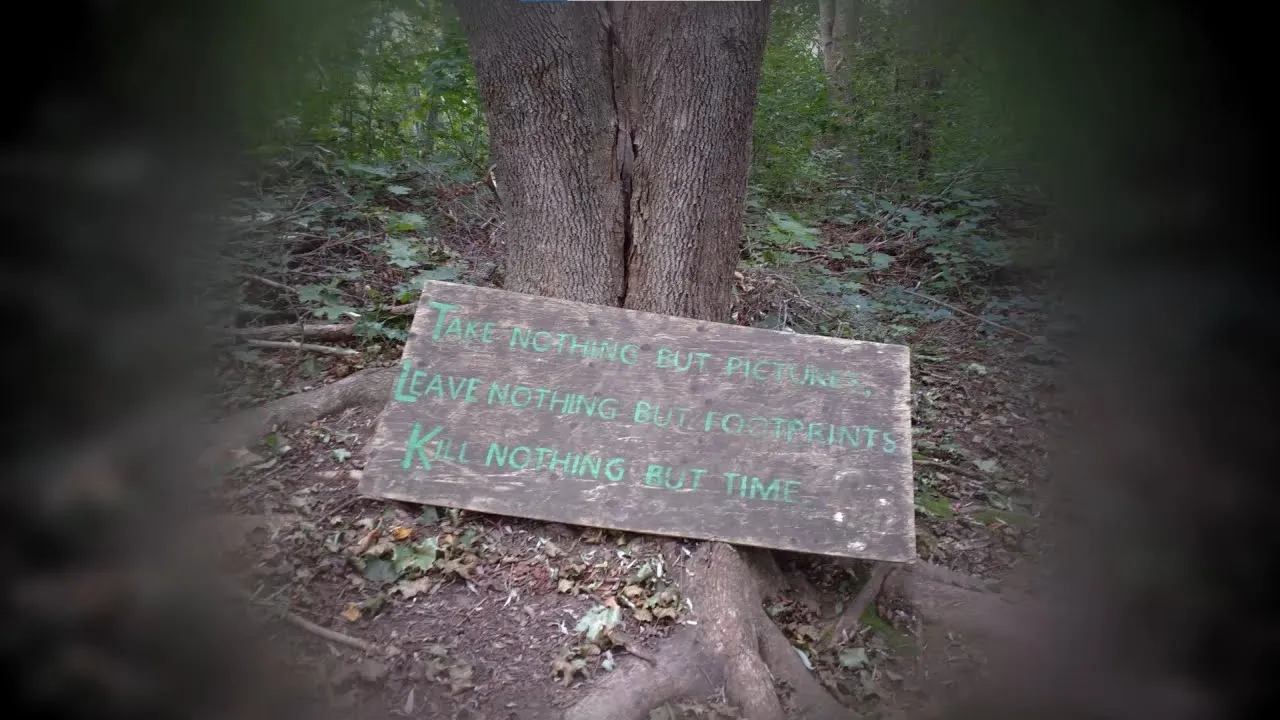 TAKE NOTHING BUT PICTURES,
LEAVE NOTHING BUT FOOTPRINTS
KILL NOTHING BUT TIME